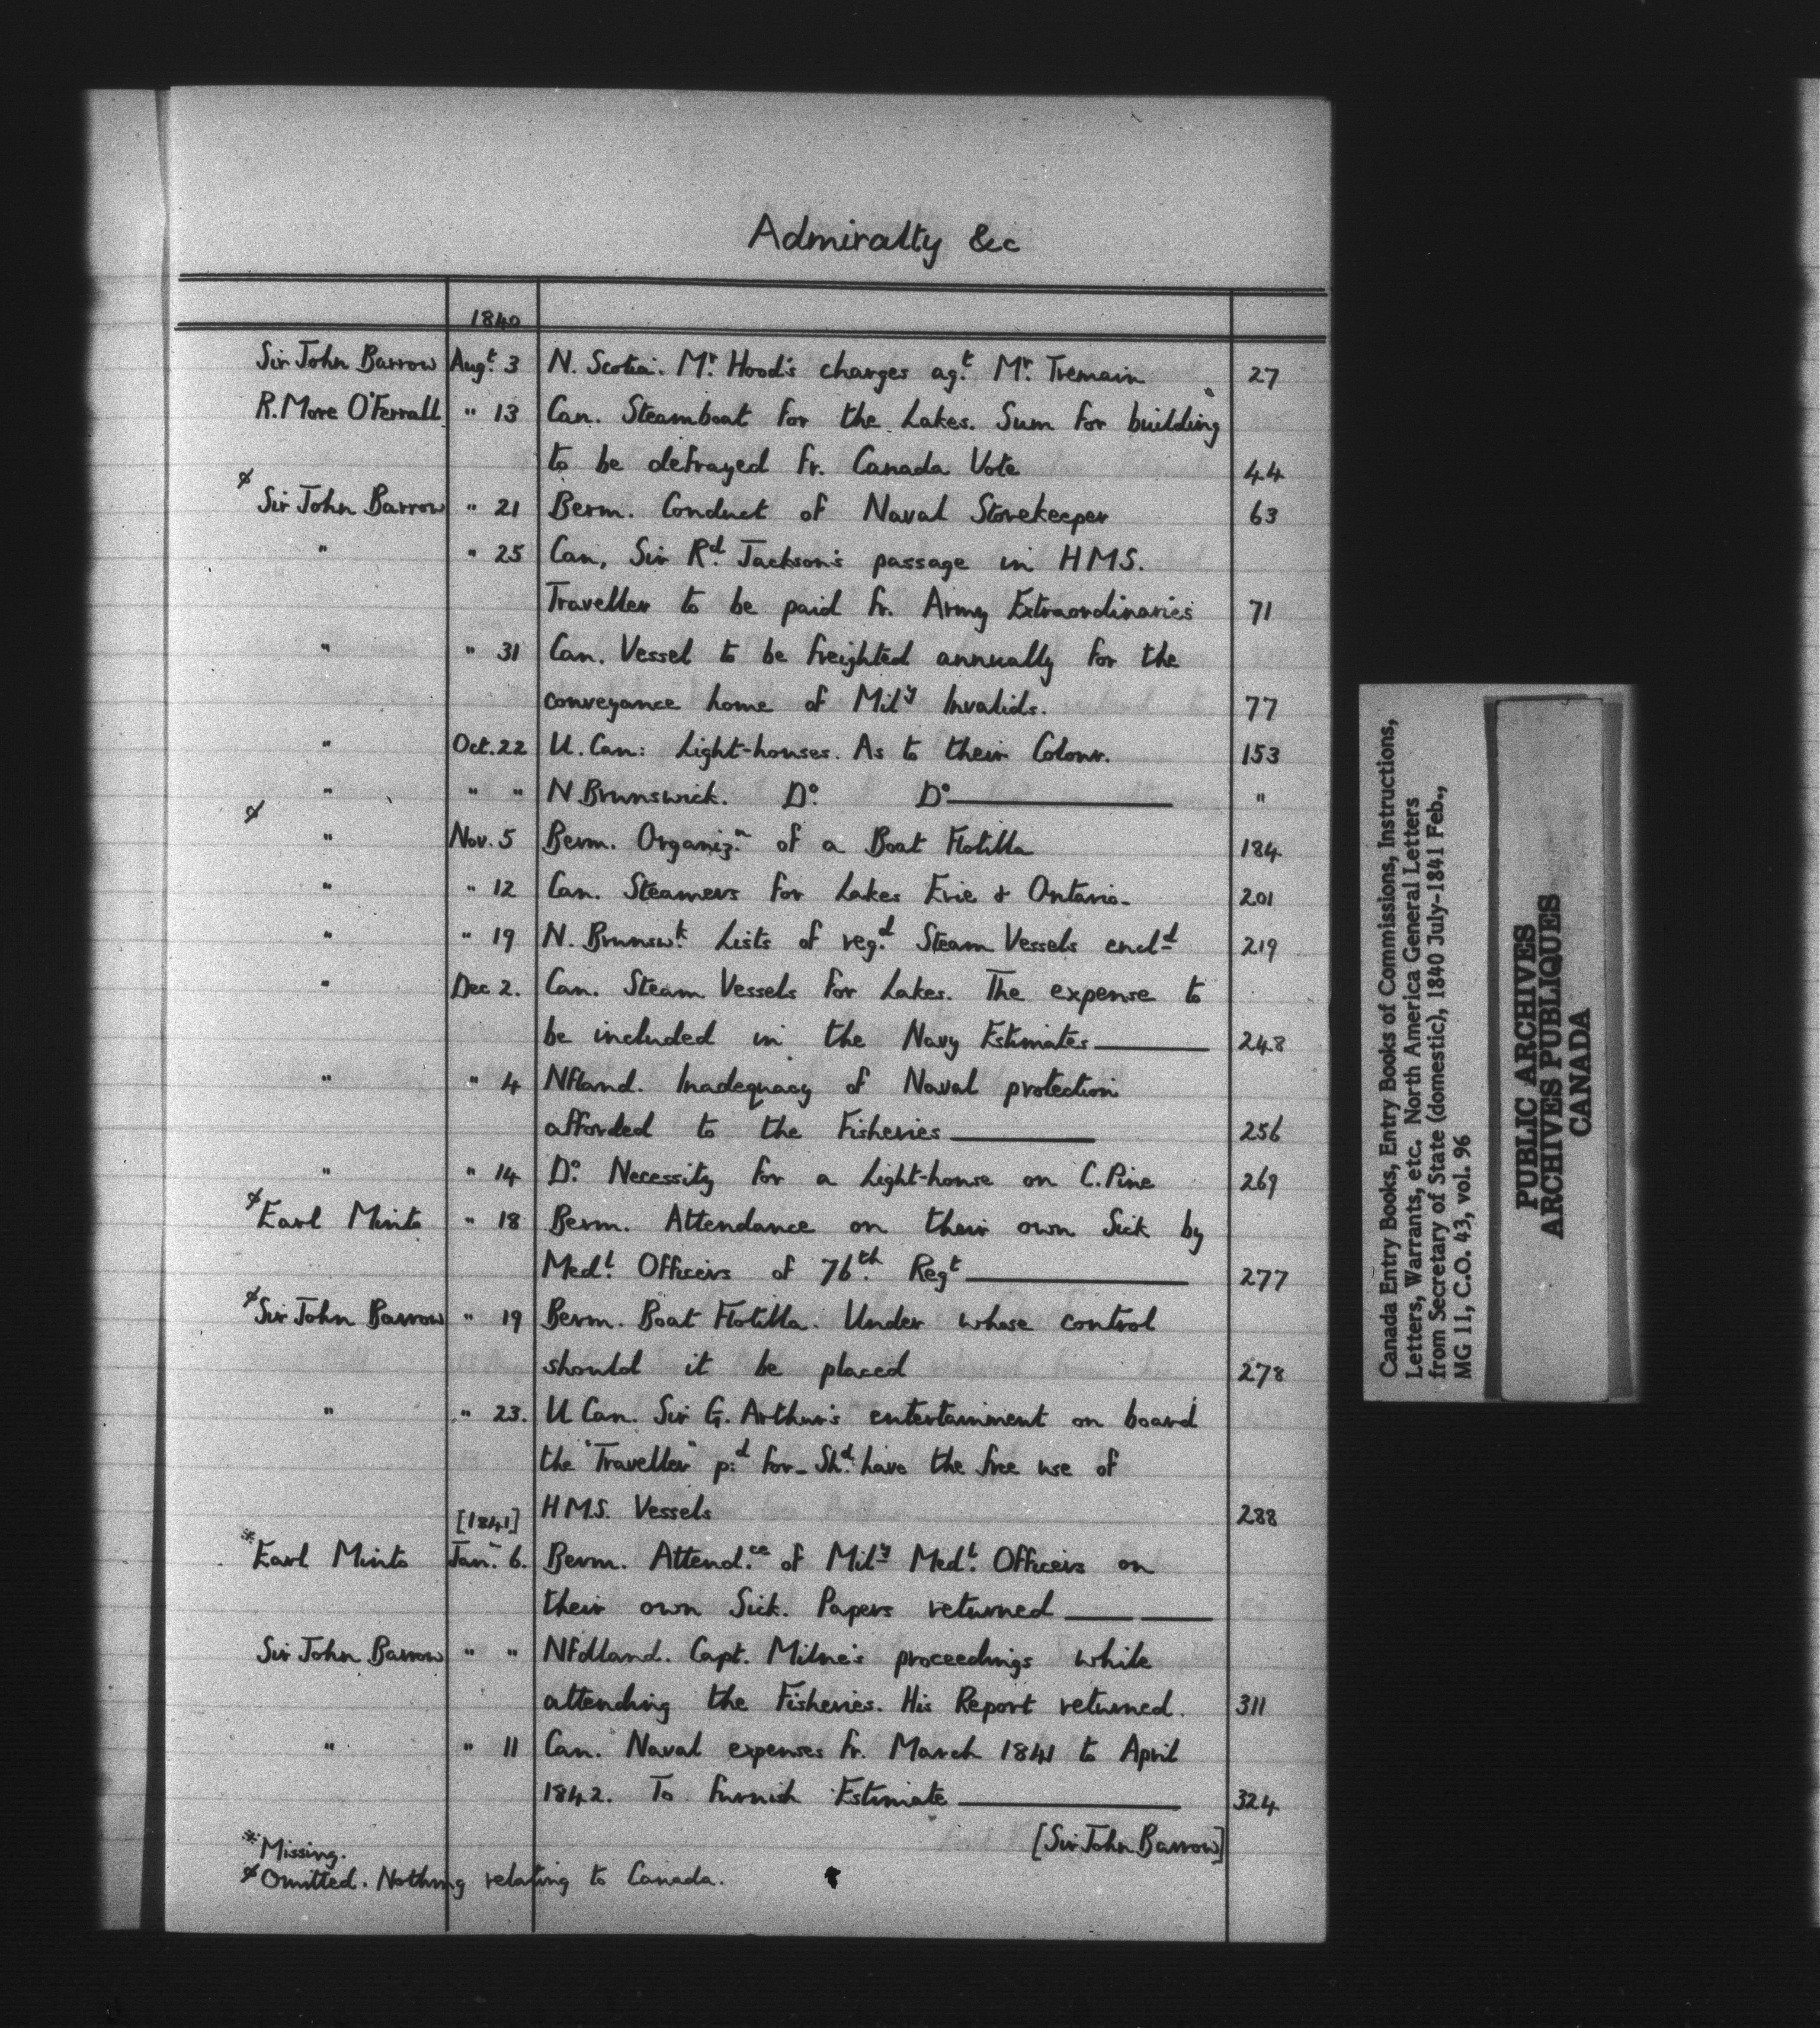 Admiralty &c
1840
Sir John Barrow Augt. 3 N. Scotia. Mr. Hood's charges agt. Mr. Tremain 27
R. More O'Ferrall " 13 Can. Steamboat for the Lakes. Sum for building
to be defrayed fr. Canada Vote 44
ø Sir John Barrow " 21 Berm. Conduct of Naval Storekeeper 63
" " 25 Can, Sir Rd. Jackson's passage in HMS.
Traveller to be paid fr. Army Extraordinaries 71
" " 31 Can. Vessel to be freighted annually for the
conveyance home of Mily Invalids. 77
" Oct. 22 U. Can: Light-houses. As to their Colour. 153
" " " N Brunswick. Do. Do "
ø " Nov. 5 Berm. Organizn. of a Boat Flotilla 184
" " 12 Can. Steamers for Lakes Erie & Ontario. 201
" " 19 N. Brunswk. Lists of regd. Steam Vessels encld 219
" Dec 2. Can. Steam Vessels for Lakes. The expense to
be included in the Navy Estimates 248
" " 4 Nfland. Inadequacy of Naval protection
afforded to the Fisheries 256
" " 14 Do. Necessity for a Light-house on C. Pine 269
ø Earl Minto " 18 Berm. Attendance on their own Sick by
Medl. Officers of 76th. Regt 277
ø Sir John Barrow " 19 Berm. Boat Flotilla. Under whose control
should it be placed 278
" " 23. U Can. Sir G. Arthur's entertainment on board
the "Traveller" pd. for - Shd. have the free use of
HMS. Vessels 288
[1841]
* Earl Minto Jany. 6. Berm. Attendce. of Mily Medl. Officers on
their own Sick. Papers returned
Sir John Barrow " " Nfdland. Capt. Milne's proceedings while
attending the Fisheries. His Report returned. 311
" " 11 Can. Naval expenses fr. March 1841 to April
1842. To furnish Estimate 324
[Sir John Barrow]
* Missing.
ø Omitted. Nothing relating to Canada.
Canada Entry Books, Entry Books of Commissions, Instructions,
Letters, Warrants, etc. North America General Letters
from Secretary of State (domestic), 1840 July-1841 Feb.,
MG 11, C.O. 43, vol. 96
PUBLIC ARCHIVES
ARCHIVES PUBLIQUES
CANADA